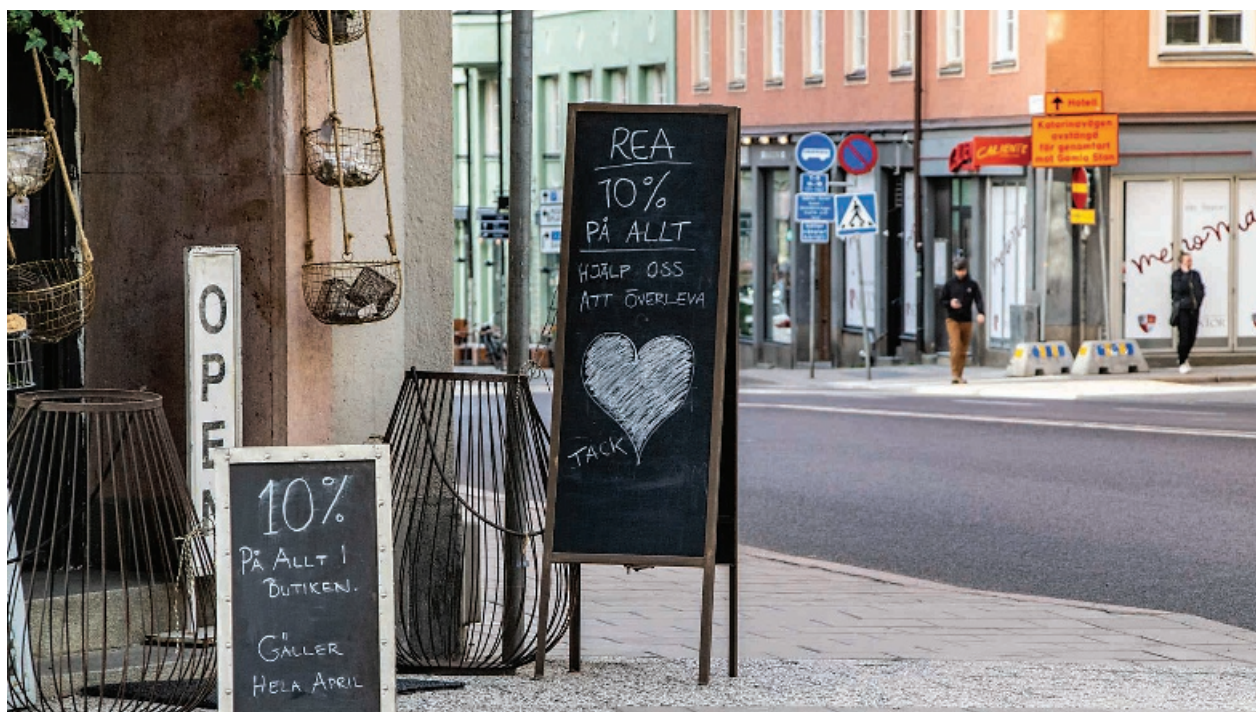 OPEN
10%
PÅ ALLT I
BUTIKEN.
GÄLLER
HELA APRIL
REA
10%
PÅ ALLT
HJÄLP OSS
ATT ÖVERLEVA
TACK
CALIENTE
Hotell
Katarinavägen
avstängd
för genomfart
mot Gamla Stan